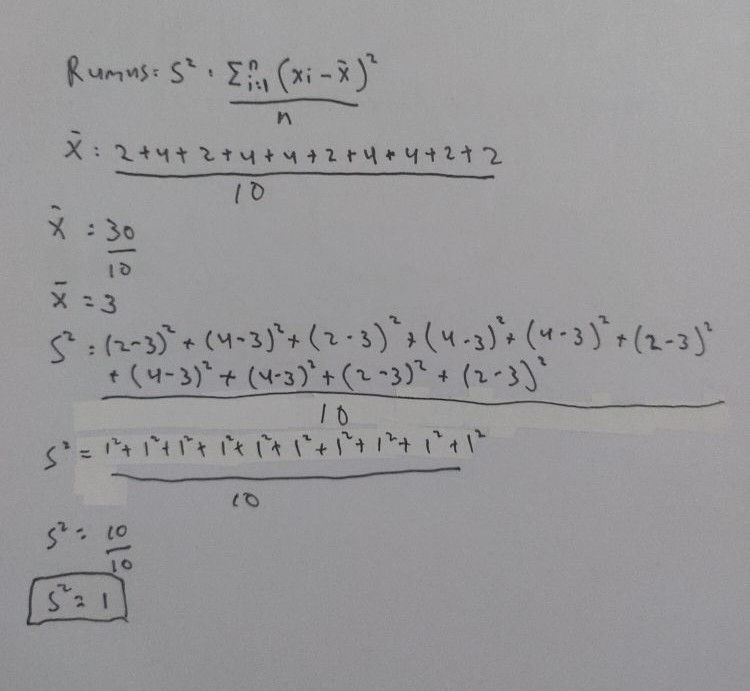 Rumus: S² : Σⁿᵢ₌₁ (xi - x̄)²
n
x̄ : 2+4+2+4+4+2+4+4+2+2
10
x̄ : 30
10
x̄ = 3
S² : (2-3)² + (4-3)² + (2-3)² + (4-3)² + (4-3)² + (2-3)²
+ (4-3)² + (4-3)² + (2-3)² + (2-3)²
10
S² = 1² + 1² + 1² + 1² + 1² + 1² + 1² + 1² + 1² + 1²
10
S² = 10
10
S² = 1